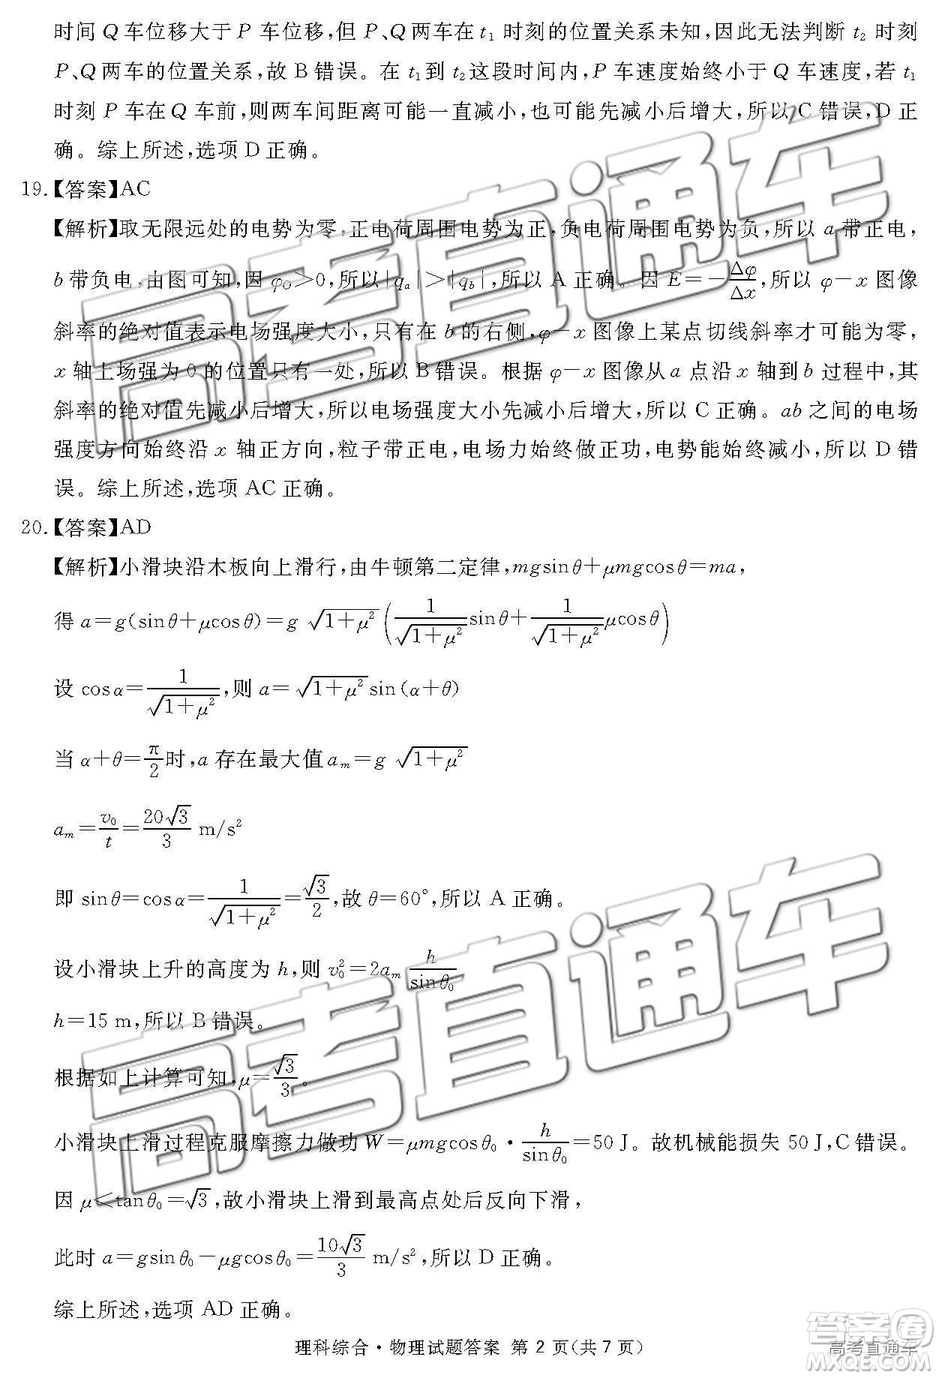 时间 Q 车位移大于 P 车位移,但 P、Q 两车在 t₁ 时刻的位置关系未知,因此无法判断 t₂ 时刻
P、Q 两车的位置关系,故 B 错误。在 t₁ 到 t₂ 这段时间内,P 车速度始终小于 Q 车速度,若 t₁
时刻 P 车在 Q 车前,则两车间距离可能一直减小,也可能先减小后增大,所以 C 错误,D 正
确。综上所述,选项 D 正确。
19.【答案】AC
【解析】取无限远处的电势为零,正电荷周围电势为正,负电荷周围电势为负,所以 a 带正电,
b 带负电,由图可知,因 φO>0,所以|qa|>|qb|,所以 A 正确。因 E=−Δφ/Δx,所以 φ−x 图像
斜率的绝对值表示电场强度大小,只有在 b 的右侧,φ−x 图像上某点切线斜率才可能为零,
x 轴上场强为 0 的位置只有一处,所以 B 错误。根据 φ−x 图像从 a 点沿 x 轴到 b 过程中,其
斜率的绝对值先减小后增大,所以电场强度大小先减小后增大,所以 C 正确。ab 之间的电场
强度方向始终沿 x 轴正方向,粒子带正电,电场力始终做正功,电势能始终减小,所以 D 错
误。综上所述,选项 AC 正确。
20.【答案】AD
【解析】小滑块沿木板向上滑行,由牛顿第二定律,mgsinθ+μmgcosθ=ma,
得 a=g(sinθ+μcosθ)=g √(1+μ²) (1/√(1+μ²) sinθ+1/√(1+μ²) μcosθ)
设 cosα=1/√(1+μ²),则 a=√(1+μ²) sin(α+θ)
当 α+θ=π/2时,a 存在最大值 aₘ=g √(1+μ²)
aₘ=v₀/t=20√3/3 m/s²
即 sinθ=cosα=1/√(1+μ²)=√3/2,故 θ=60°,所以 A 正确。
设小滑块上升的高度为 h,则 v₀²=2aₘ h/sinθ₀
h=15 m,所以 B 错误。
根据如上计算可知,μ=√3/3。
小滑块上滑过程克服摩擦力做功 W=μmgcosθ₀·h/sinθ₀=50 J。故机械能损失 50 J,C 错误。
因 μ<tanθ₀=√3,故小滑块上滑到最高点处后反向下滑,
此时 a=gsinθ₀−μgcosθ₀=10√3/3 m/s²,所以 D 正确。
综上所述,选项 AD 正确。
理科综合·物理试题答案 第 2 页(共 7 页)
高考直通车
高考直通车
高考直通车
答案圈
MXQE.COM